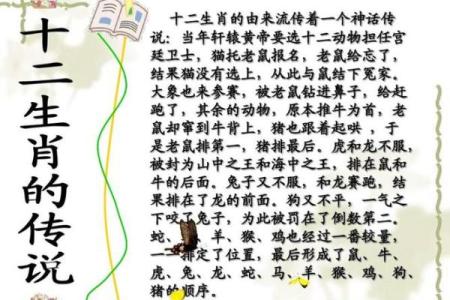 十二生肖的传说
十二生肖的由来流传着一个神话传
说：当年轩辕黄帝要选十二动物担任宫
廷卫士，猫托老鼠报名，老鼠给忘了，
结果猫没有选上，从此与鼠结下冤家。
大象也来参赛，被老鼠钻进鼻子，给赶
跑了，其余的动物，原本推牛为首，老
鼠却窜到牛背上，猪也跟着起哄，于
是老鼠排第一，猪排最后。虎和龙不服，
被封为山中之王和海中之王，排在鼠和
牛的后面。兔子又不服，和龙赛跑，结
果排在了龙的前面。狗又不平，一气之
下咬了兔子，为此被罚在了倒数第二。
蛇、、羊、猴、鸡也经过一番较量，
一排定了位置，最后形成了鼠、牛、
虎、兔、龙、蛇、马、羊、猴、鸡、狗、
猪的顺序。